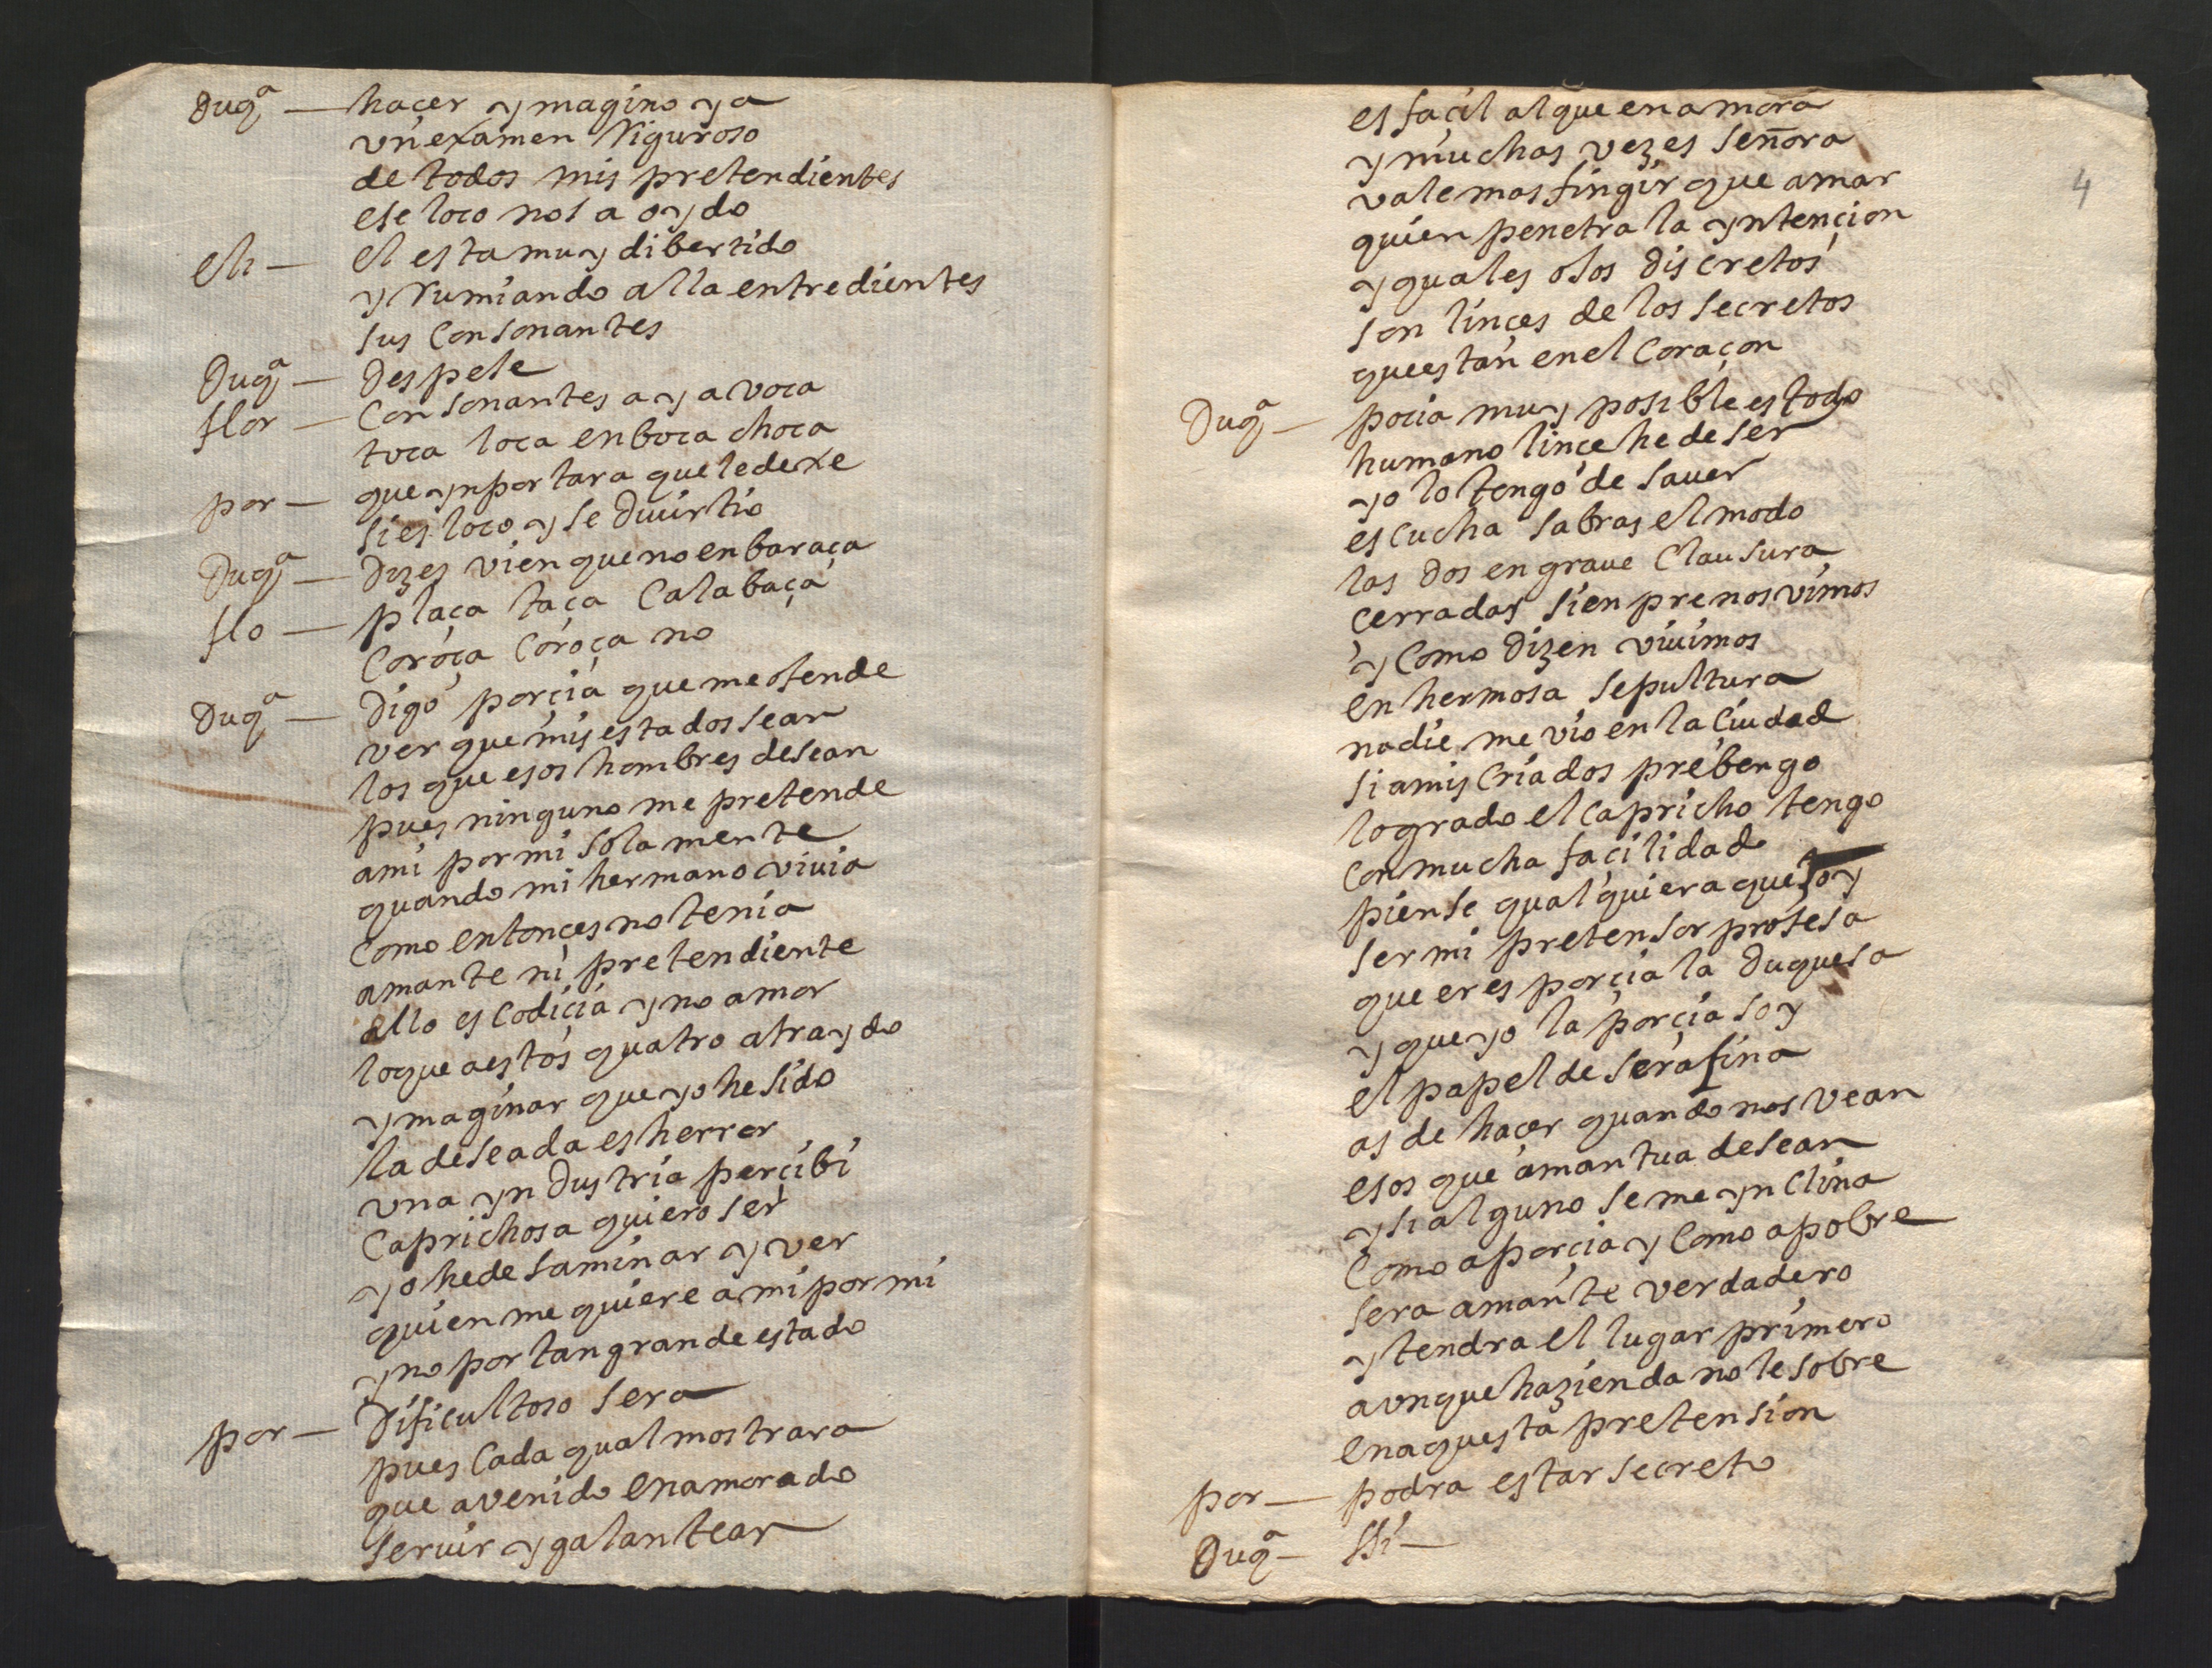 Duqª — haçer ymagino ya
vn examen Riguroso
de todos mis pretendientes
ese loco nos a oydo
eli — el esta muy dibertido
y Rumiando alla entre dientes
sus Consonantes
Duqª — Despeje
flor — Consonantes a ya voca
toca loca enboca choca
por — que ynportara que le dexe
si es loco y se diuirtio
Duqª — Dizes vien que no enbaraça
flo — plaça taça Calabaça
Coroça Coroça no
Duqª — Digo porçia que me ofende
ver que mis estados sean
los que esos hombres desean
pues ninguno me pretende
ami por mi sola mente
quando mi hermano viuia
como entonçes no tenia
amante ni pretendiente
ello es codiçia y no amor
loque aestos quatro atraydo
ymaginar que yo he sido
la deseada es herror
vna yndustria perçibi
Caprichosa quiero ser
yo he desaminar y ver
quien me quiere a mi por mi
y no por tan grande estado
por — Dificultoso sera
pues Cada qual mostrara
que a venido enamorado
seruir y galantear
4
es façil al que enamora
y muchas vezes señora
vale mas fingir que amar
quien penetra la yntençion
y quales ojos discretos
son linçes de los secretos
questan en el Coraçon
Duqª — pocia muy posible es todo
humano linçe he de ser
yo lo tengo de sauer
escucha sabras el modo
las dos en graue Clausura
cerradas sienpre nos vimos
y Como dizen viuimos
en hermosa sepultura
nadie me vio en la Ciudad
si a mis Criados prebengo
logrado el capricho tengo
con mucha façilidad
piense qualquiera que soy
ser mi pretensor profesa
que eres porçia la Duquesa
y que yo la porçia soy
el papel de serafina
as de haçer quando nos vean
esos que amantua desean
y si alguno se me ynclina
Como a porçia y Como a pobre
sera amante verdadero
y tendra el lugar primero
aunque hazienda no le sobre
en aquesta pretension
por — podra estar secreto
Duqª — ssi —